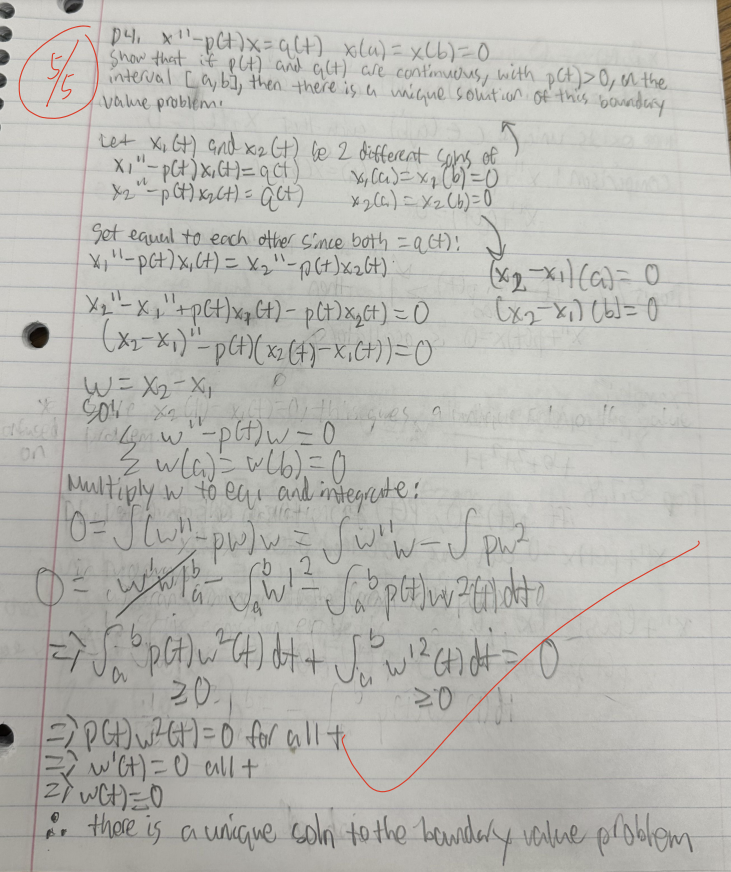 5/5
P4. x'' - p(t)x = q(t) x(a) = x(b) = 0
Show that if p(t) and q(t) are continuous, with p(t) > 0, on the
interval [a, b], then there is a unique solution of this boundary
value problem.
Let x₁(t) and x₂(t) be 2 different solns of
x₁'' - p(t)x₁(t) = q(t) x₁(a) = x₁(b) = 0
x₂'' - p(t)x₂(t) = q(t) x₂(a) = x₂(b) = 0
Set equal to each other since both = q(t):
x₁'' - p(t)x₁(t) = x₂'' - p(t)x₂(t) (x₂ - x₁)(a) = 0
x₂'' - x₁'' + p(t)x₁(t) - p(t)x₂(t) = 0 (x₂ - x₁)(b) = 0
(x₂ - x₁)'' - p(t)(x₂(t) - x₁(t)) = 0
w = x₂ - x₁
So:
w'' - p(t)w = 0
w(a) = w(b) = 0
Multiply w to eq. and integrate:
0 = ∫(w'' - pw)w = ∫w''w - ∫pw²
0 = w'w|ₐᵇ - ∫ₐᵇ w'² - ∫ₐᵇ p(t)w²(t)dt
⇒ ∫ₐᵇ p(t)w²(t)dt + ∫ₐᵇ w'²(t)dt = 0
≥0 ≥0
⇒ p(t)w²(t) = 0 for all t
⇒ w'(t) = 0 all t
⇒ w(t) = 0
∴ there is a unique soln to the boundary value problem